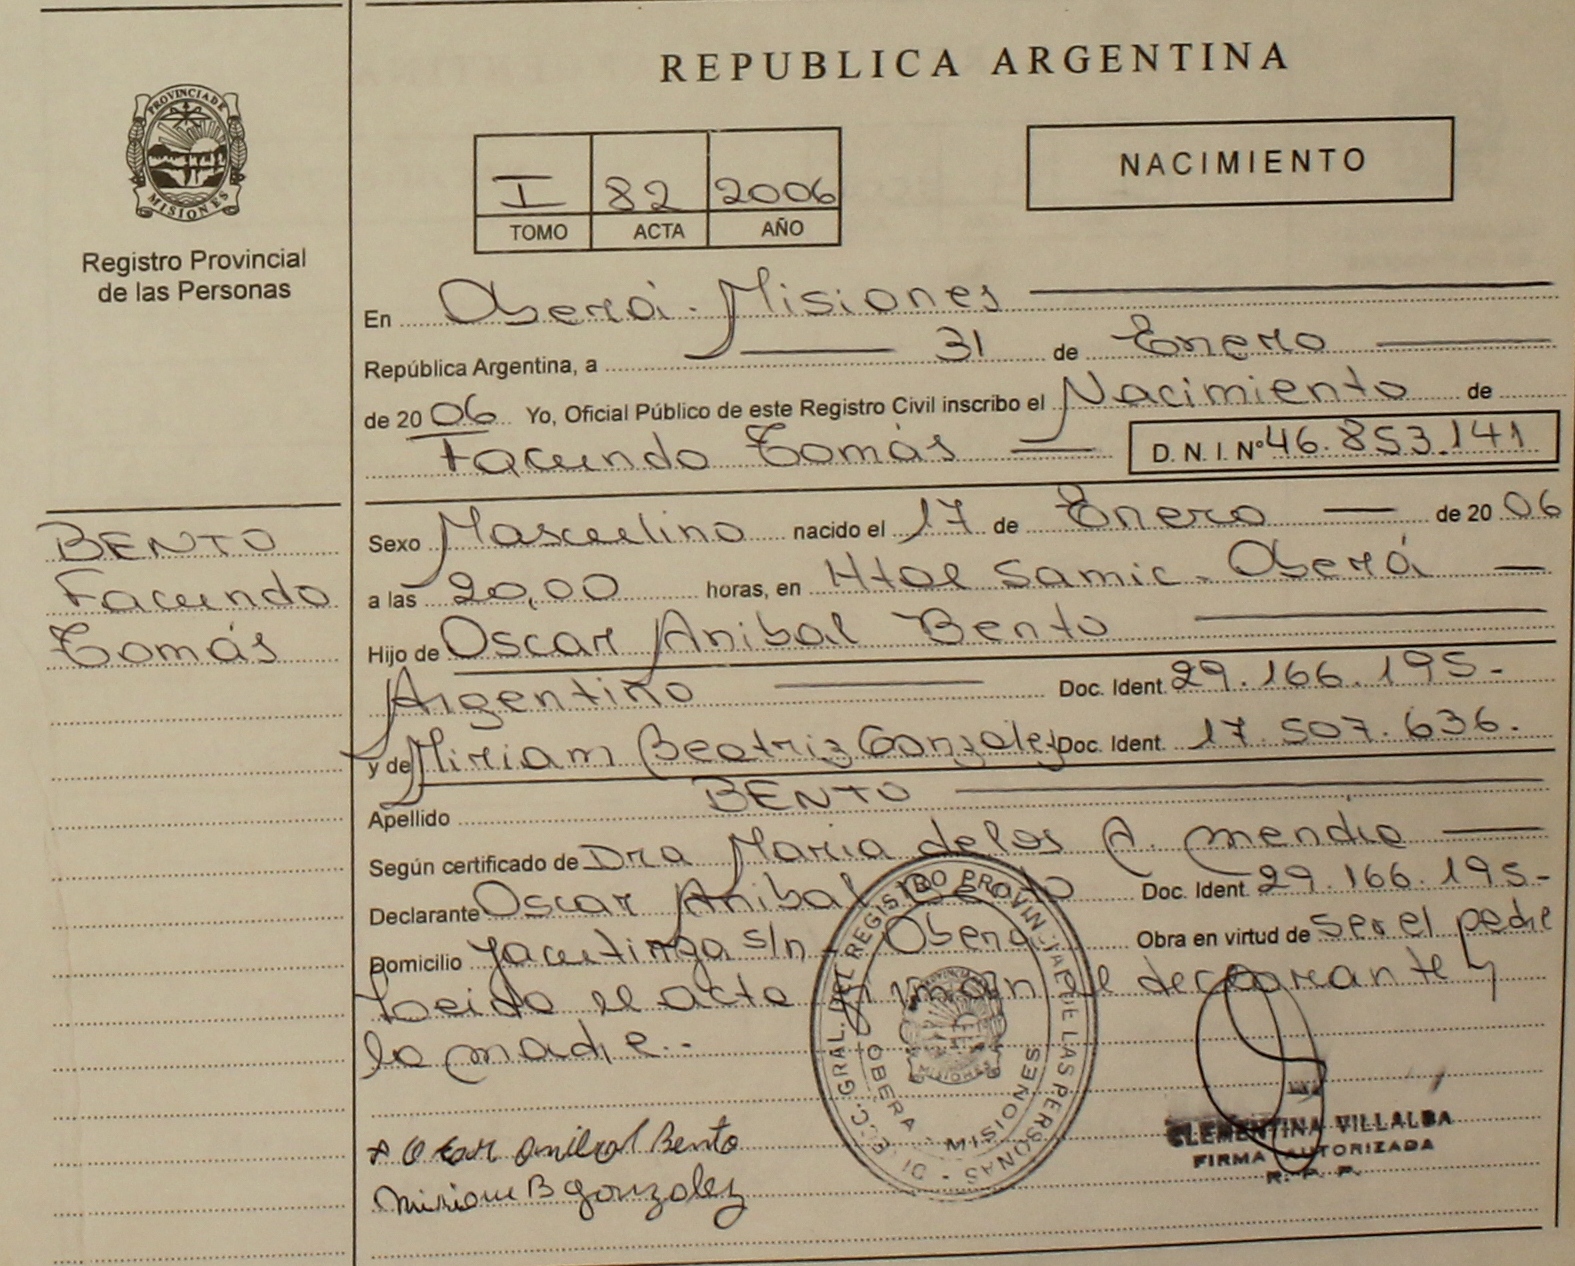 REPUBLICA ARGENTINA
PROVINCIA DE MISIONES
Registro Provincial
de las Personas
I 82 2006
TOMO ACTA AÑO
NACIMIENTO
En Oberá - Misiones
República Argentina, a 31 de Enero
de 2006 Yo, Oficial Público de este Registro Civil inscribo el Nacimiento de
Facundo Tomás D. N. I. Nº 46.853.141
BENTO
Facundo
Tomás
Sexo Masculino nacido el 17 de Enero de 2006
a las 20,00 horas, en Htal Samic - Oberá
Hijo de Oscar Anibal Bento
Argentino Doc. Ident. 29.166.195-
y de Miriam Beatriz Gonzalez Doc. Ident. 17.507.636.
Apellido BENTO
Según certificado de Dra Maria de los A. Mendro
Declarante Oscar Anibal Bento Doc. Ident. 29.166.195-
Domicilio Yacutinga s/n - Oberá Obra en virtud de ser el padre
Leida el acta firman el declarante y
la madre..
Oscar Anibal Bento
Miriam B Gonzalez
DI. C. GRAL. DEL REGISTRO PROVINCIAL DE LAS PERSONAS
OBERA - MISIONES
MISIONES
CLEMENTINA VILLALBA
FIRMA AUTORIZADA
R. P. P.